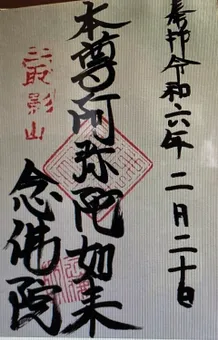 奉拝令和六年二月二十日
本尊阿弥陀如来
影山
念佛院